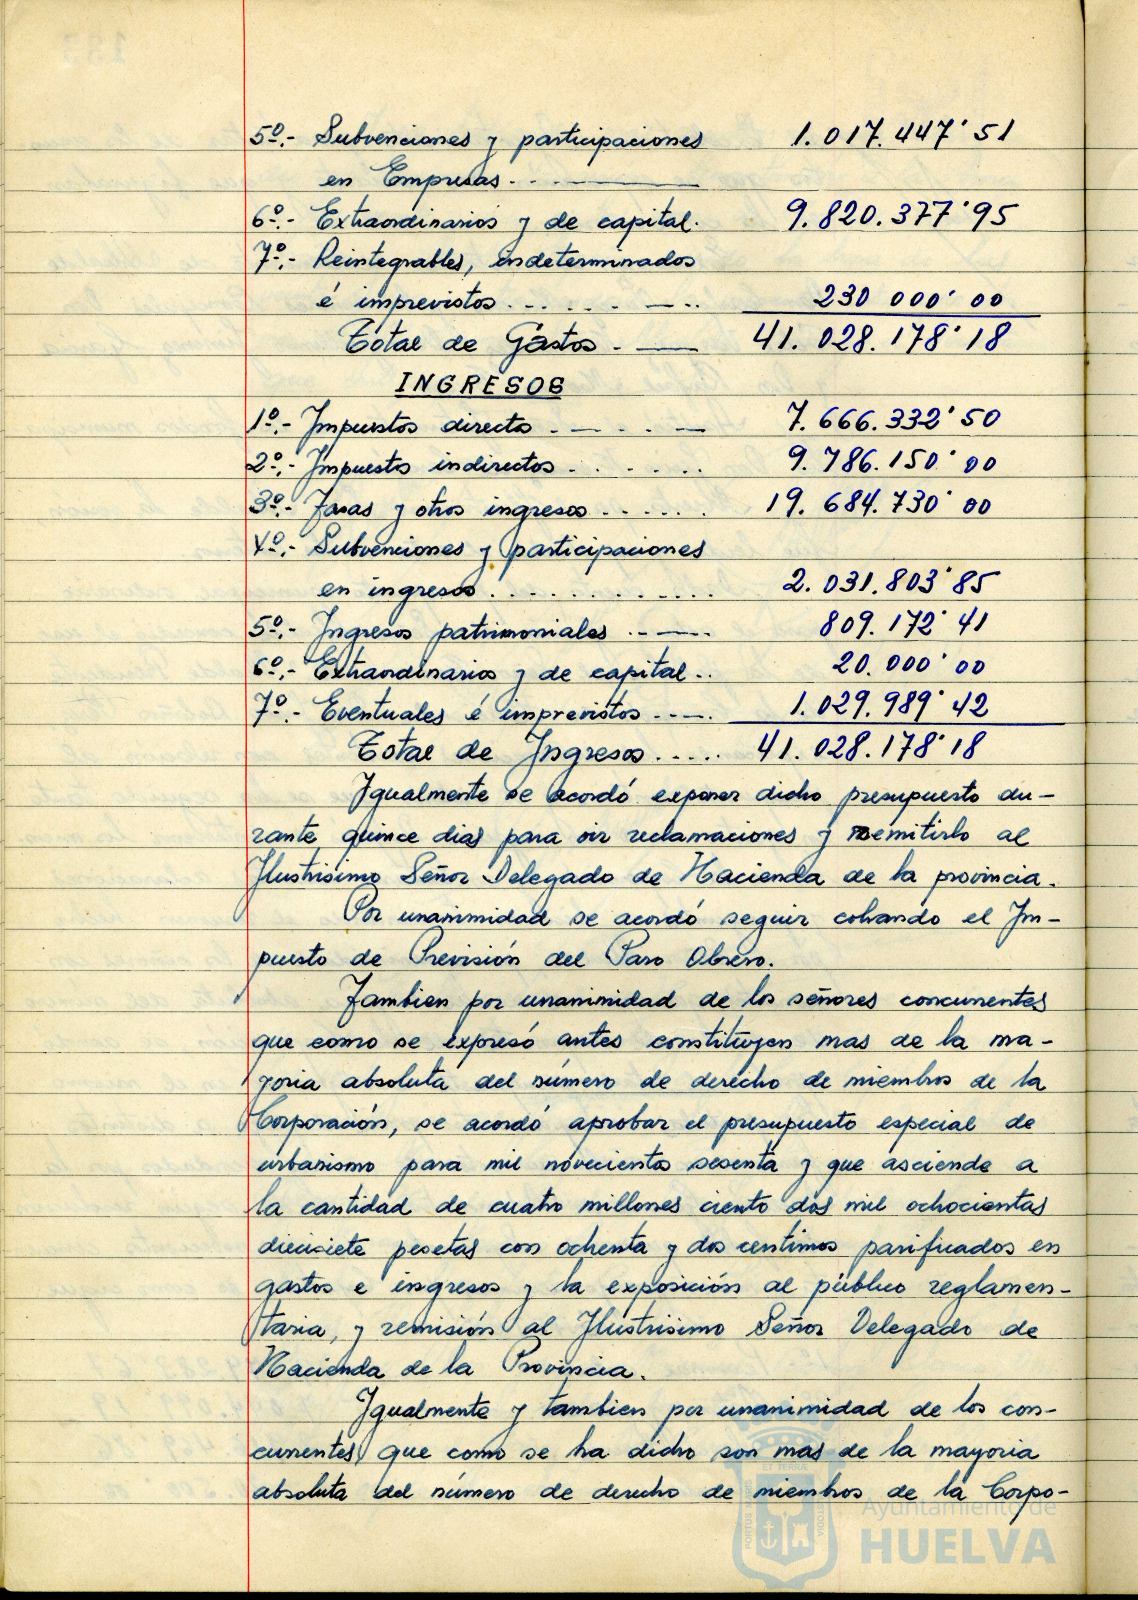 5º.- Subvenciones y participaciones 1.017.447'51
en Empresas.
6º.- Extraordinarios y de capital. 9.820.377'95
7º.- Reintegrables, indeterminados
é imprevistos..... 230 000'00
Total de Gastos. 41.028.178'18
INGRESOS
1º.- Impuestos directos. 7.666.332'50
2º.- Impuestos indirectos...... 9.786.150'00
3º.- Tasas y otros ingresos...... 19.684.730'00
4º.- Subvenciones y participaciones
en ingresos............ 2.031.803'85
5º.- Ingresos patrimoniales 809.172'41
6º.- Extraordinarios y de capital.. 20.000'00
7º.- Eventuales é imprevistos 1.029.989'42
Total de Ingresos..... 41.028.178'18
Igualmente se acordó exponer dicho presupuesto du-
rante quince dias para oir reclamaciones y remitirlo al
Ilustrisimo Señor Delegado de Hacienda de la provincia.
Por unanimidad se acordó seguir cobrando el Im-
puesto de Previsión del Paro Obrero.
Tambien por unanimidad de los señores concurrentes
que como se expresó antes constituyen mas de la ma-
yoria absoluta del número de derecho de miembros de la
Corporación, se acordó aprobar el presupuesto especial de
urbanismo para mil novecientos sesenta y que asciende a
la cantidad de cuatro millones ciento dos mil ochocientas
diecisiete pesetas con ochenta y dos centimos parificados en
gastos e ingresos y la exposición al público reglamen-
taria, y remisión al Ilustrisimo Señor Delegado de
Hacienda de la Provincia.
Igualmente y tambien por unanimidad de los con-
currentes que como se ha dicho son mas de la mayoria
absoluta del número de derecho de miembros de la Corpo-
Ayuntamiento de
HUELVA